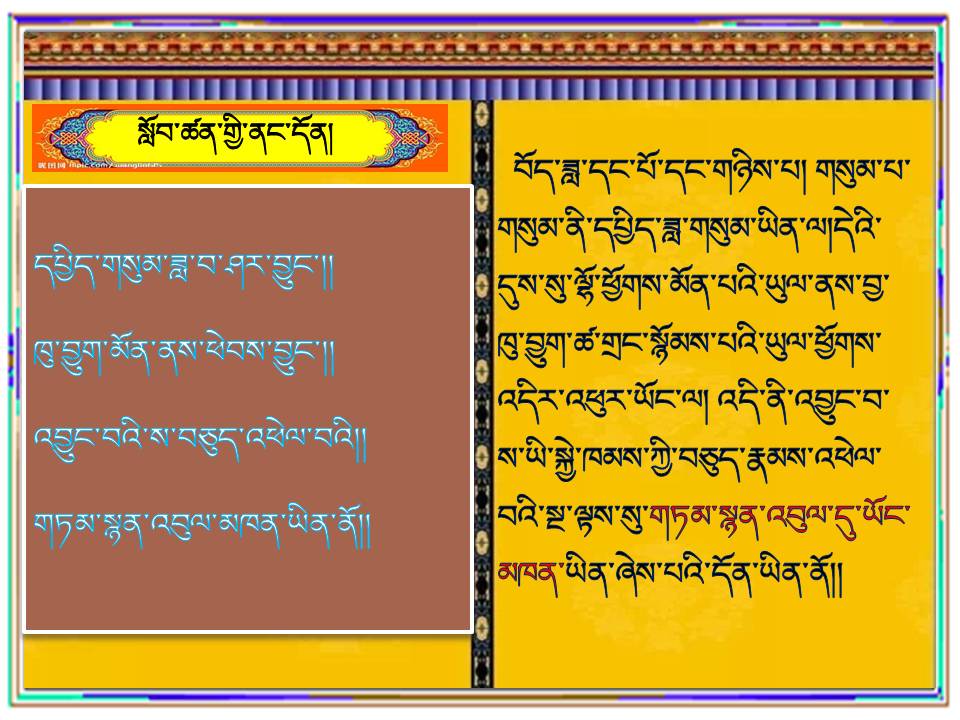 སློབ་ཚན་གྱི་ནང་དོན།
དཔྱིད་གསུམ་ཟླ་བ་ཤར་བྱུང་།།
ཁུ་བྱུག་མོན་ནས་ཕེབས་བྱུང་།།
འབྱུང་བའི་ས་བཅུད་འཕེལ་བའི།།
གཏམ་སྙན་འབུལ་མཁན་ཡིན་ནོ།།
བོད་ཟླ་དང་པོ་དང་གཉིས་པ། གསུམ་པ་
གསུམ་ནི་དཔྱིད་ཟླ་གསུམ་ཡིན་ལ།དེའི་
དུས་སུ་ལྷོ་ཕྱོགས་མོན་པའི་ཡུལ་ནས་བྱ་
ཁུ་བྱུག་ཚ་གྲང་སྙོམས་པའི་ཡུལ་ཕྱོགས་
འདིར་འཕུར་ཡོང་ལ། འདི་ནི་འབྱུང་བ་
ས་ཡི་སྐྱེ་ཁམས་ཀྱི་བཅུད་རྣམས་འཕེལ་
བའི་སྔ་ལྟས་སུ་གཏམ་སྙན་འབུལ་དུ་ཡོང་
མཁན་ཡིན་ཞེས་པའི་དོན་ཡིན་ནོ།།